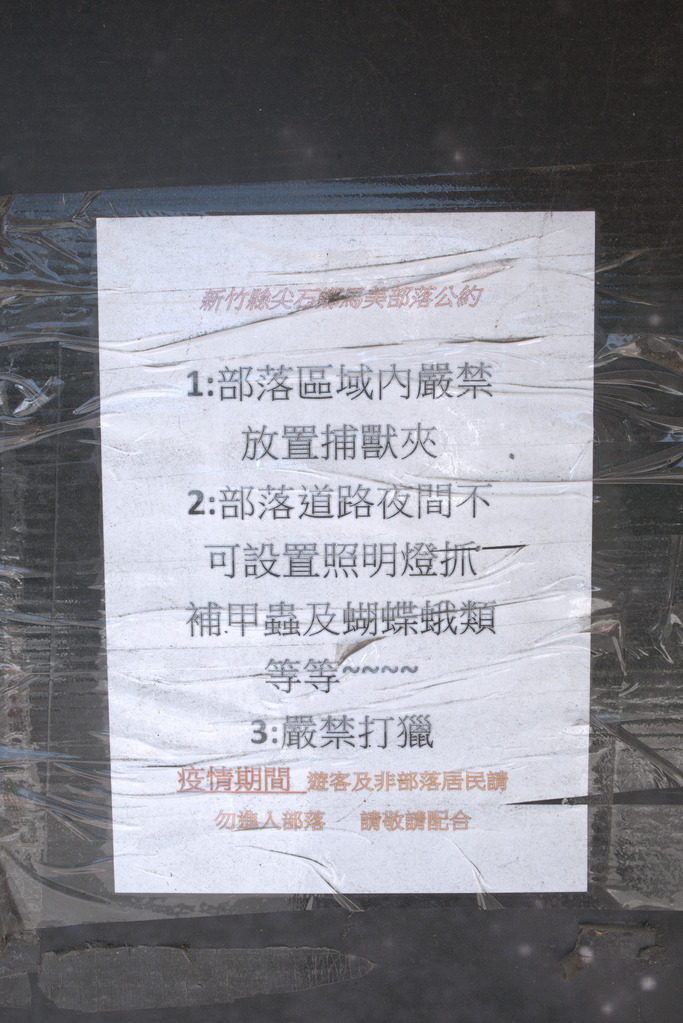 新竹縣尖石鄉馬美部落公約
1:部落區域內嚴禁
放置捕獸夾
2:部落道路夜間不
可設置照明燈抓
補甲蟲及蝴蝶蛾類
等等~~~~
3:嚴禁打獵
疫情期間 遊客及非部落居民請
勿進入部落 請敬請配合